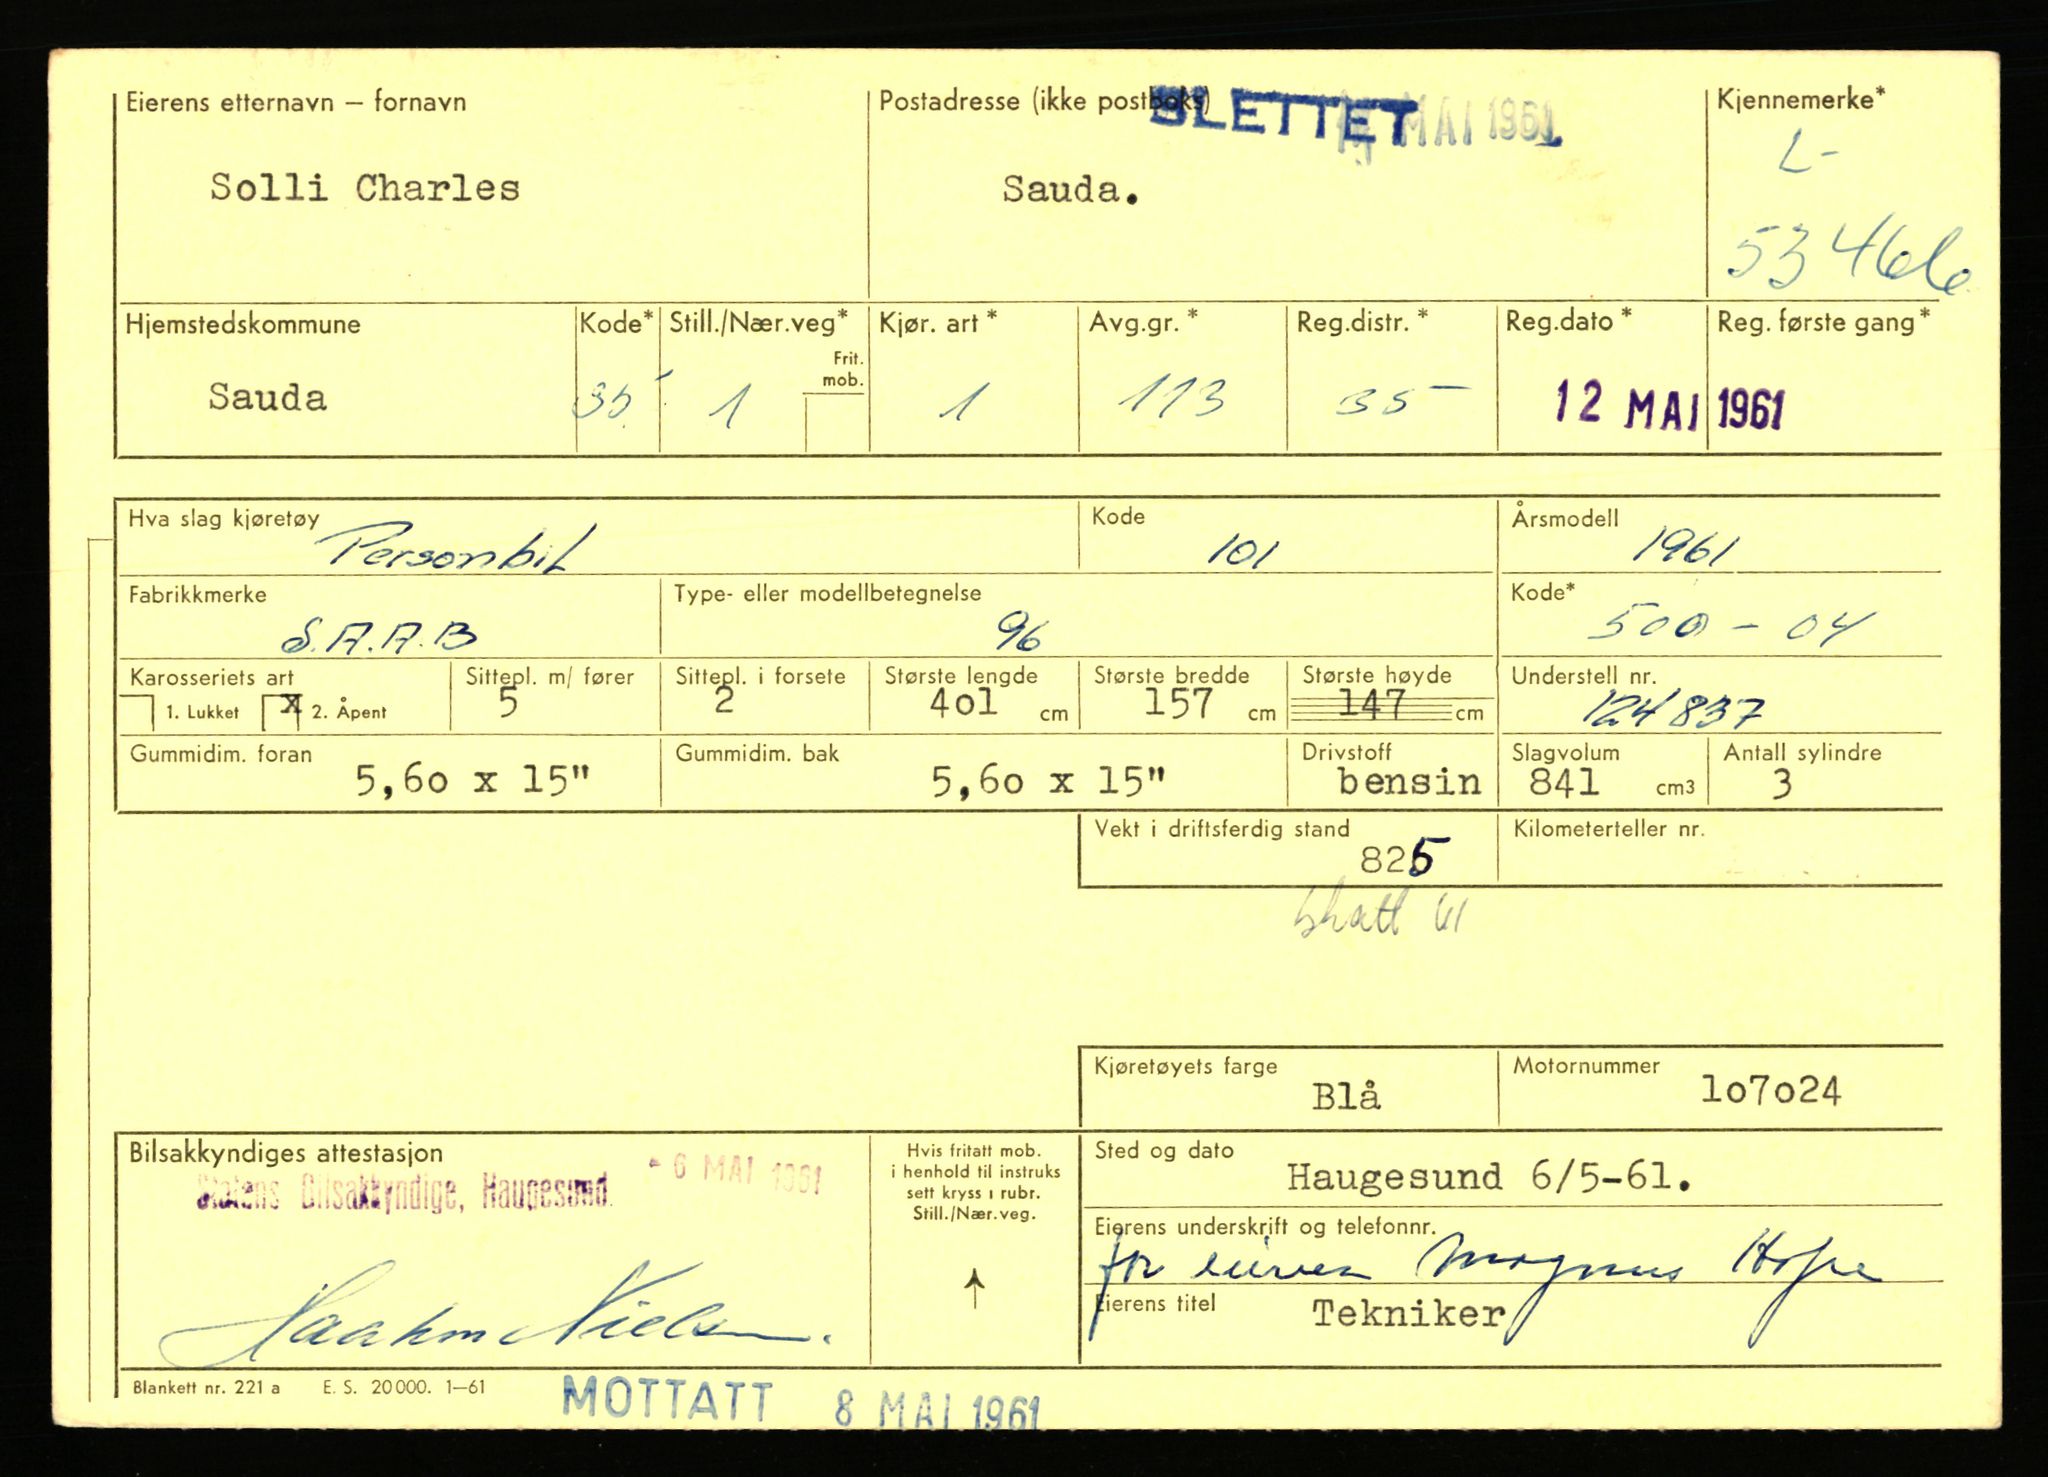 Eierens etternavn – fornavn
Postadresse (ikke postboks)
SLETTET
MAI 1961
Kjennemerke*
Solli Charles
Sauda.
L-
53466
Hjemstedskommune
Kode*
Still./Nær.veg*
Frit. mob.
Kjør. art *
Avg.gr. *
Reg.distr. *
Reg.dato *
Reg. første gang*
Sauda
35
1
1
113
35
12 MAI 1961
Hva slag kjøretøy
Personbil
Kode
101
Årsmodell
1961
Fabrikkmerke
S.A.A.B
Type- eller modellbetegnelse
96
Kode*
500-04
Karosseriets art
1. Lukket
X 2. Åpent
Sittepl. m/ fører
5
Sittepl. i forsete
2
Største lengde
401 cm
Største bredde
157 cm
Største høyde
147 cm
Understell nr.
124837
Gummidim. foran
5,60 x 15"
Gummidim. bak
5,60 x 15"
Drivstoff
bensin
Slagvolum
841 cm3
Antall sylindre
3
Vekt i driftsferdig stand
825
Kilometerteller nr.
Kjøretøyets farge
Blå
Motornummer
107024
Bilsakkyndiges attestasjon
- 6 MAI 1961
Statens Bilsakkyndige, Haugesund.
Haakon Nielsen.
Hvis fritatt mob.
i henhold til instruks
sett kryss i rubr.
Still./Nær.veg.
↑
Sted og dato
Haugesund 6/5-61.
Eierens underskrift og telefonnr.
for eieren Magnus Hope
Eierens titel
Tekniker
Blankett nr. 221 a E. S. 20000. 1–61
MOTTATT 8 MAI 1961